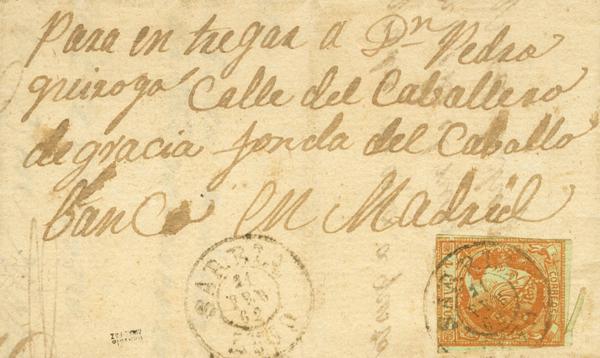 Para en tregar a Dn Pedro
quiroga Calle del Caballero
de gracia fonda del Caballo
banco en Madrid
SARRIA